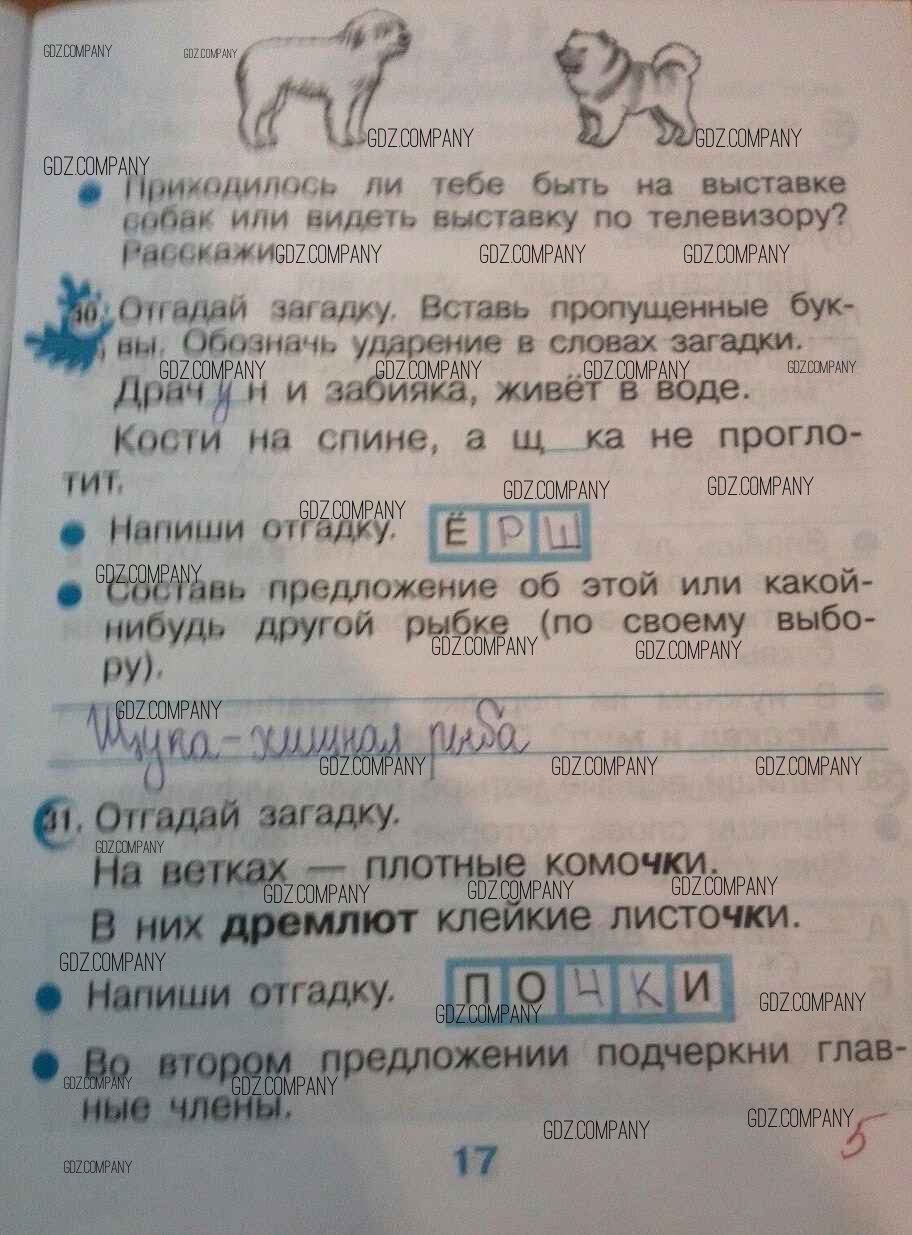 GDZ.COMPANY GDZ.COMPANY
GDZ.COMPANY GDZ.COMPANY
GDZ.COMPANY
Приходилось ли тебе быть на выставке
собак или видеть выставку по телевизору?
Расскажи GDZ.COMPANY GDZ.COMPANY GDZ.COMPANY
30. Отгадай загадку. Вставь пропущенные бук-
вы. Обозначь ударение в словах загадки.
GDZ.COMPANY GDZ.COMPANY GDZ.COMPANY GDZ.COMPANY
Драчун и забияка, живёт в воде.
Кости на спине, а щ_ка не прогло-
тит.
GDZ.COMPANY GDZ.COMPANY GDZ.COMPANY
Напиши отгадку. ЁРШ
GDZ.COMPANY
Составь предложение об этой или какой-
нибудь другой рыбке (по своему выбо-
GDZ.COMPANY GDZ.COMPANY
ру).
GDZ.COMPANY
Щука - хищная рыба
GDZ.COMPANY GDZ.COMPANY GDZ.COMPANY
31. Отгадай загадку.
GDZ.COMPANY
На ветках — плотные комочки.
GDZ.COMPANY GDZ.COMPANY GDZ.COMPANY
В них дремлют клейкие листочки.
GDZ.COMPANY
Напиши отгадку. ПОЧКИ
GDZ.COMPANY GDZ.COMPANY
Во втором предложении подчеркни глав-
GDZ.COMPANY GDZ.COMPANY
ные члены.
GDZ.COMPANY GDZ.COMPANY
5
17
GDZ.COMPANY